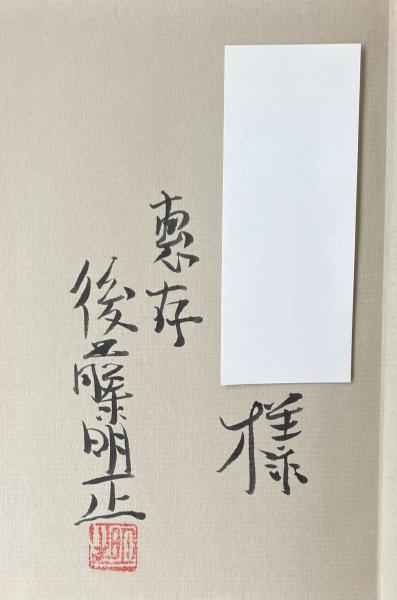 様
恵存
後藤明正